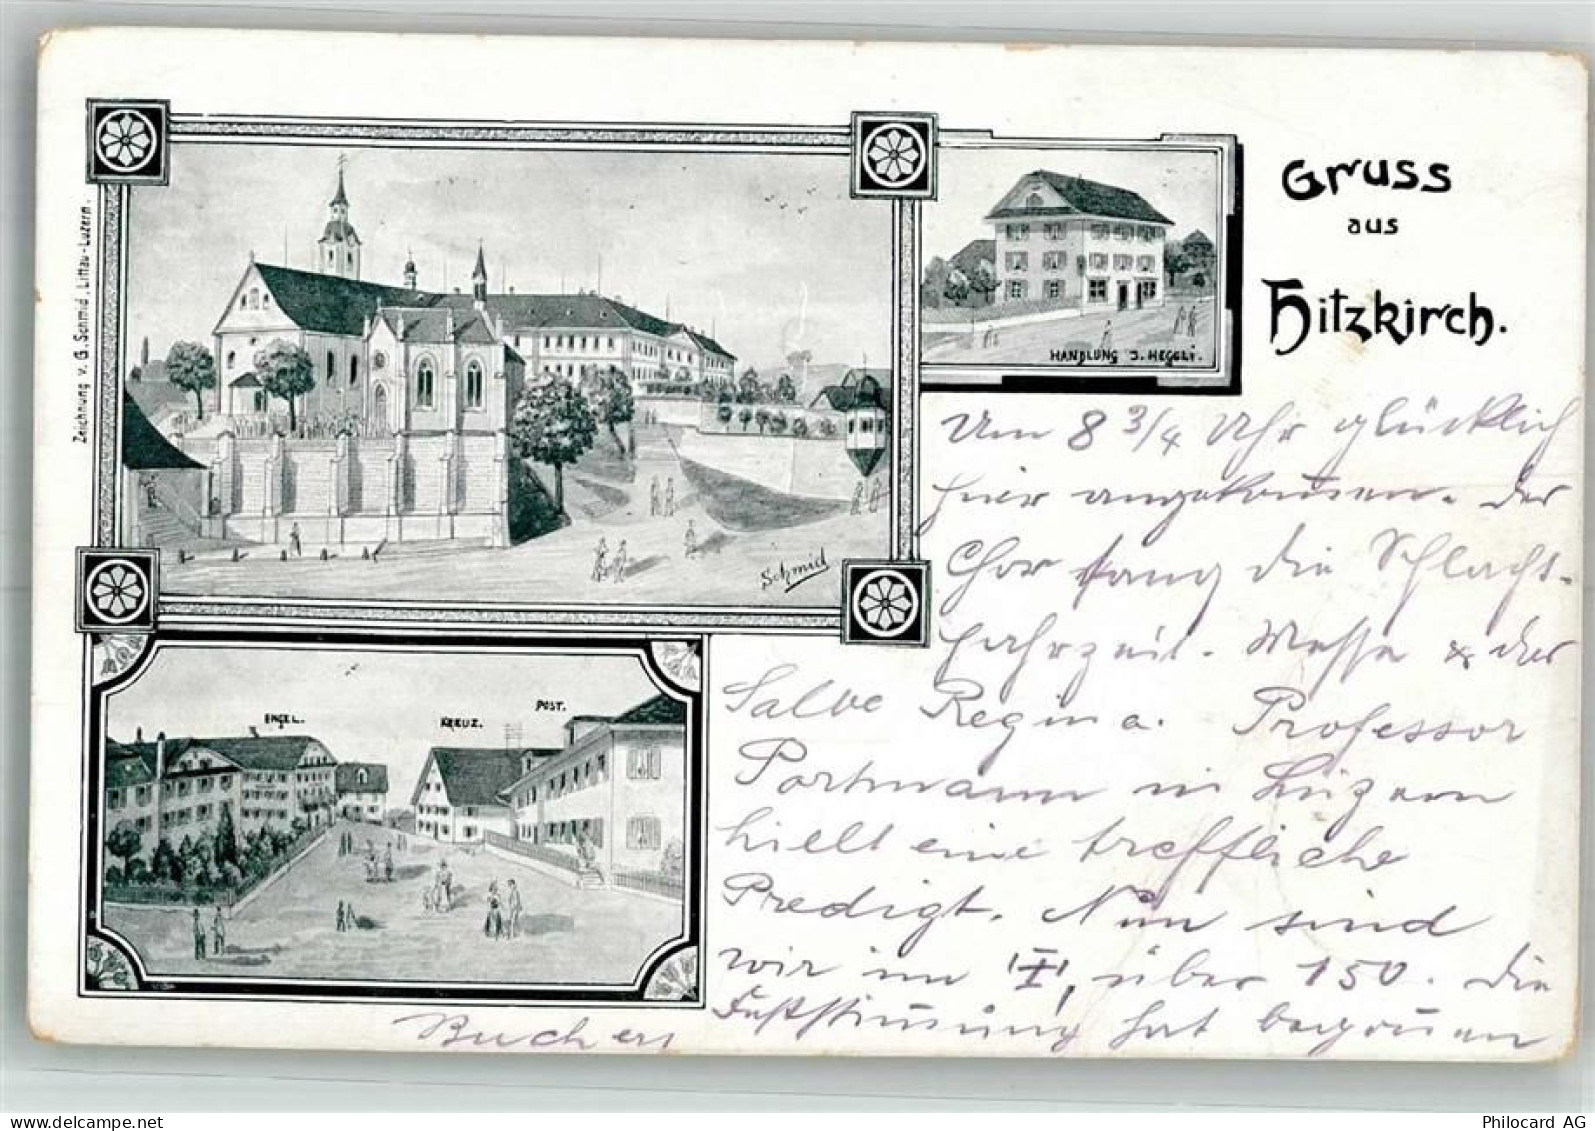 Gruss
aus
Hitzkirch.
Zeichnung v. G. Schmid, Littau-Luzern.
HANDLUNG J. HEGGLI.
Schmid
ENGEL.
KREUZ.
POST.
Um 8 3/4 Uhr glücklich
hier angekommen. Der
Chor sang die Schlacht-
jahrzeit-Messe & der
Salve Regina. Professor
Portmann in Luzern
hielt eine treffliche
Predigt. Nun sind
wir im "I", über 150. Die
Feststimmung hat begonnen
Bucher
delcampe.net
Philocard AG